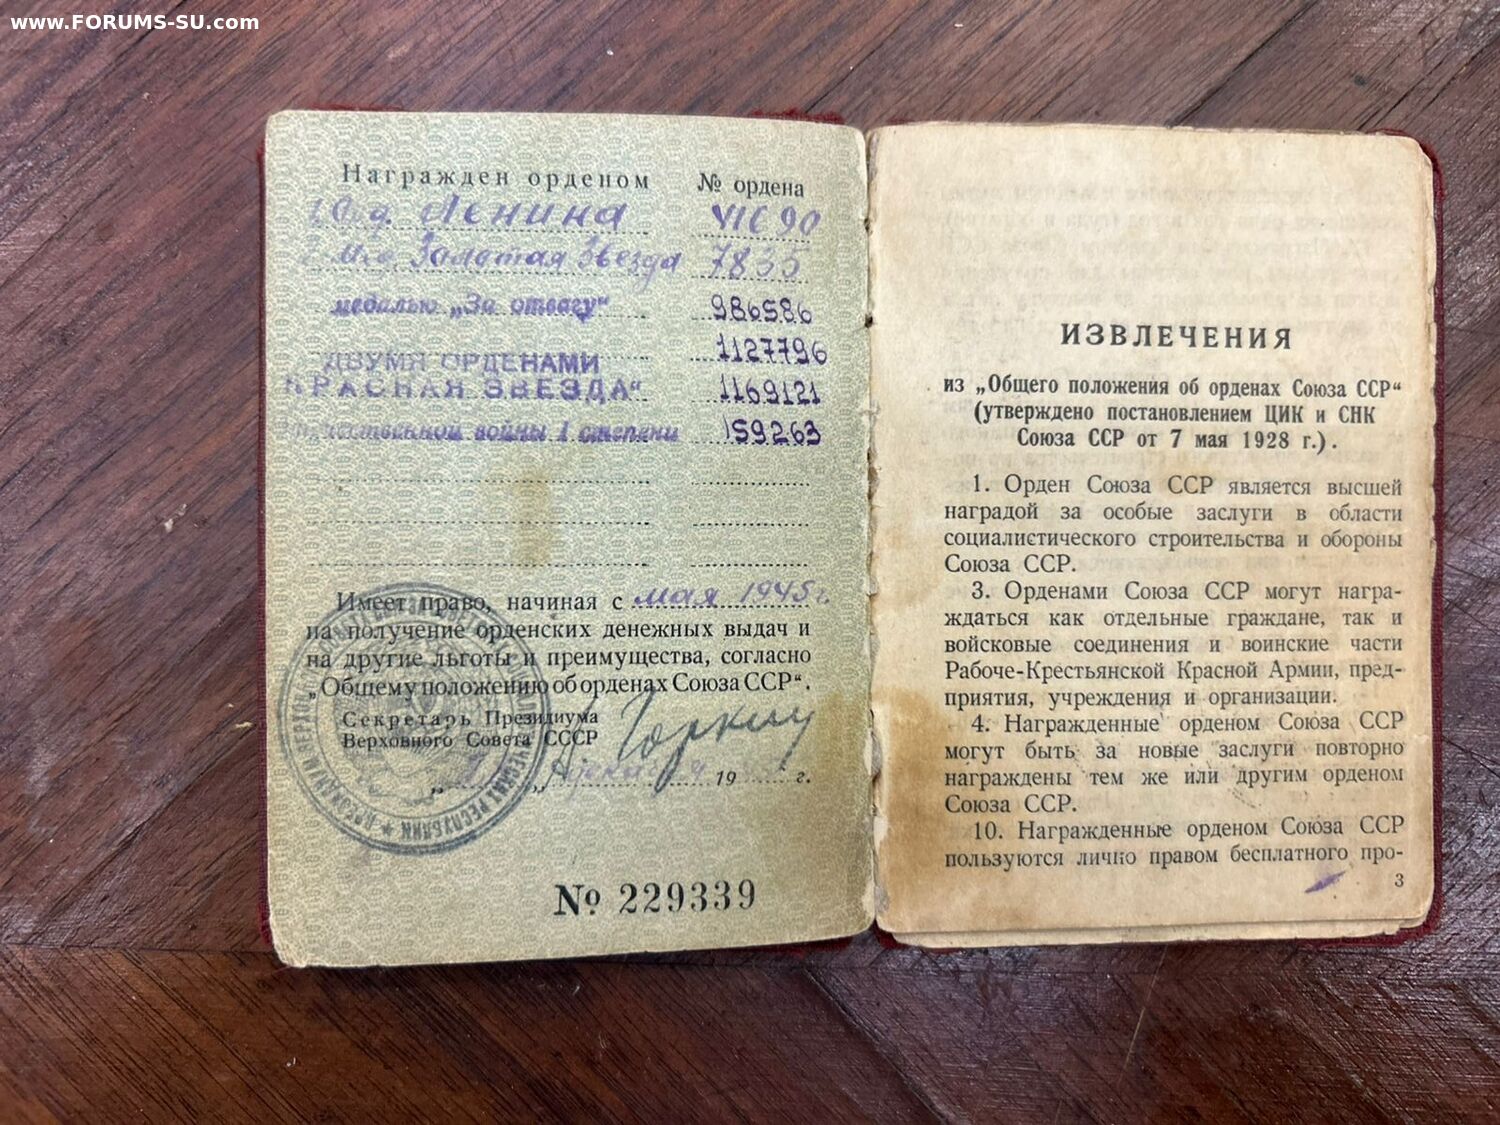 www.FORUMS-SU.com
Награжден орденом № ордена
1. Орд. Ленина 41690
2. Мед. Золотая Звезда 7835
медалью „За отвагу“ 986586
ДВУМЯ ОРДЕНАМИ 1127796
КРАСНАЯ ЗВЕЗДА“ 1169121
отечественной войны I степени 159263
Имеет право, начиная с мая 1945 г.
на получение орденских денежных выдач и
на другие льготы и преимущества, согласно
„Общему положению об орденах Союза ССР“.
Секретарь Президиума
Верховного Совета СССР Горкин
19 г.
№ 229339
ИЗВЛЕЧЕНИЯ
из „Общего положения об орденах Союза ССР“
(утверждено постановлением ЦИК и СНК
Союза ССР от 7 мая 1928 г.).
1. Орден Союза ССР является высшей
наградой за особые заслуги в области
социалистического строительства и обороны
Союза ССР.
3. Орденами Союза ССР могут награ-
ждаться как отдельные граждане, так и
войсковые соединения и воинские части
Рабоче-Крестьянской Красной Армии, пред-
приятия, учреждения и организации.
4. Награжденные орденом Союза ССР
могут быть за новые заслуги повторно
награждены тем же или другим орденом
Союза ССР.
10. Награжденные орденом Союза ССР
пользуются лично правом бесплатного про-
3